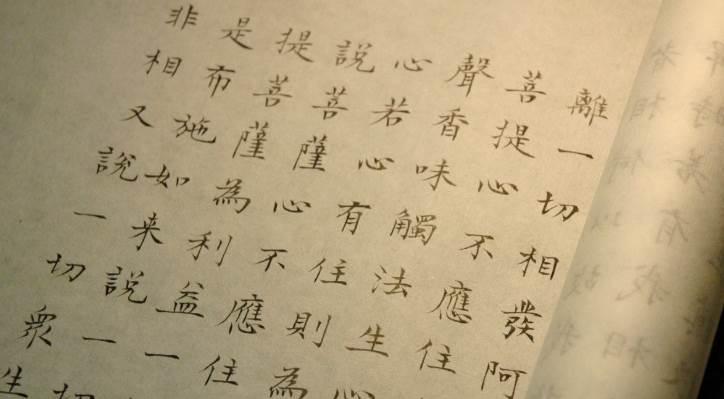 離一切相發阿
菩提心不應住
聲香味觸法生心
心若心有住則為
說菩薩心不應住
提菩薩為利益一
是布施如来說一切
非相又說一切衆生